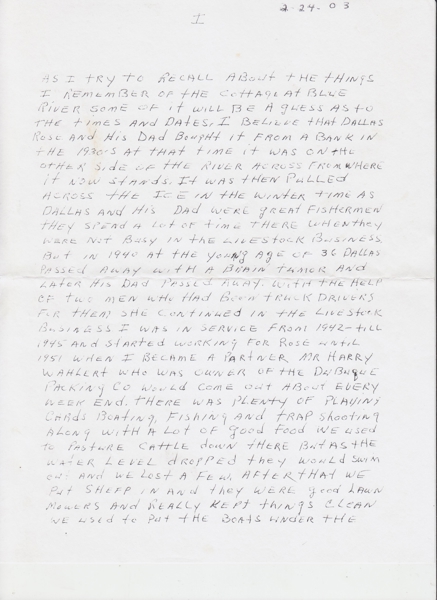 2-24-03
I
AS I TRY TO RECALL ABOUT THE THINGS
I REMEMBER OF THE COTTAGE AT BLUE
RIVER SOME OF IT WILL BE A GUESS AS TO
THE TIMES AND DATES, I BELIEVE THAT DALLAS
ROSE AND HIS DAD BOUGHT IT FROM A BANK IN
THE 1930'S AT THAT TIME IT WAS ON THE
OTHER SIDE OF THE RIVER ACROSS FROM WHERE
IT NOW STANDS. IT WAS THEN PULLED
ACROSS THE ICE IN THE WINTER TIME AS
DALLAS AND HIS DAD WERE GREAT FISHERMEN
THEY SPEND A LOT OF TIME THERE WHEN THEY
WERE NOT BUSY IN THE LIVESTOCK BUSINESS.
BUT IN 1940 AT THE YOUNG AGE OF 36 DALLAS
PASSED AWAY WITH A BRAIN TUMOR AND
LATOR HIS DAD PASSED AWAY. WITH THE HELP
OF TWO MEN WHO HAD BEEN TRUCK DRIVERS
FOR THEM SHE CONTINUED IN THE LIVESTOCK
BUSINESS I WAS IN SERVICE FROM 1942-TILL
1945 AND STARTED WORKING FOR ROSE UNTIL
1951 WHEN I BECAME A PARTNER MR HARRY
WAHLERT WHO WAS OWNER OF THE DUBUQUE
PACKING CO WOULD COME OUT ABOUT EVERY
WEEK END. THERE WAS PLENTY OF PLAYING
CARDS BOATING, FISHING AND TRAP SHOOTING
ALONG WITH A LOT OF GOOD FOOD WE USED
TO PASTURE CATTLE DOWN THERE BUT AS THE
WATER LEVEL DROPPED THEY WOULD SWIM
OUT AND WE LOST A FEW. AFTER THAT WE
PUT SHEEP IN AND THEY WERE GOOD LAWN
MOWERS AND REALLY KEPT THINGS CLEAN
WE USED TO PUT THE BOATS UNDER THE